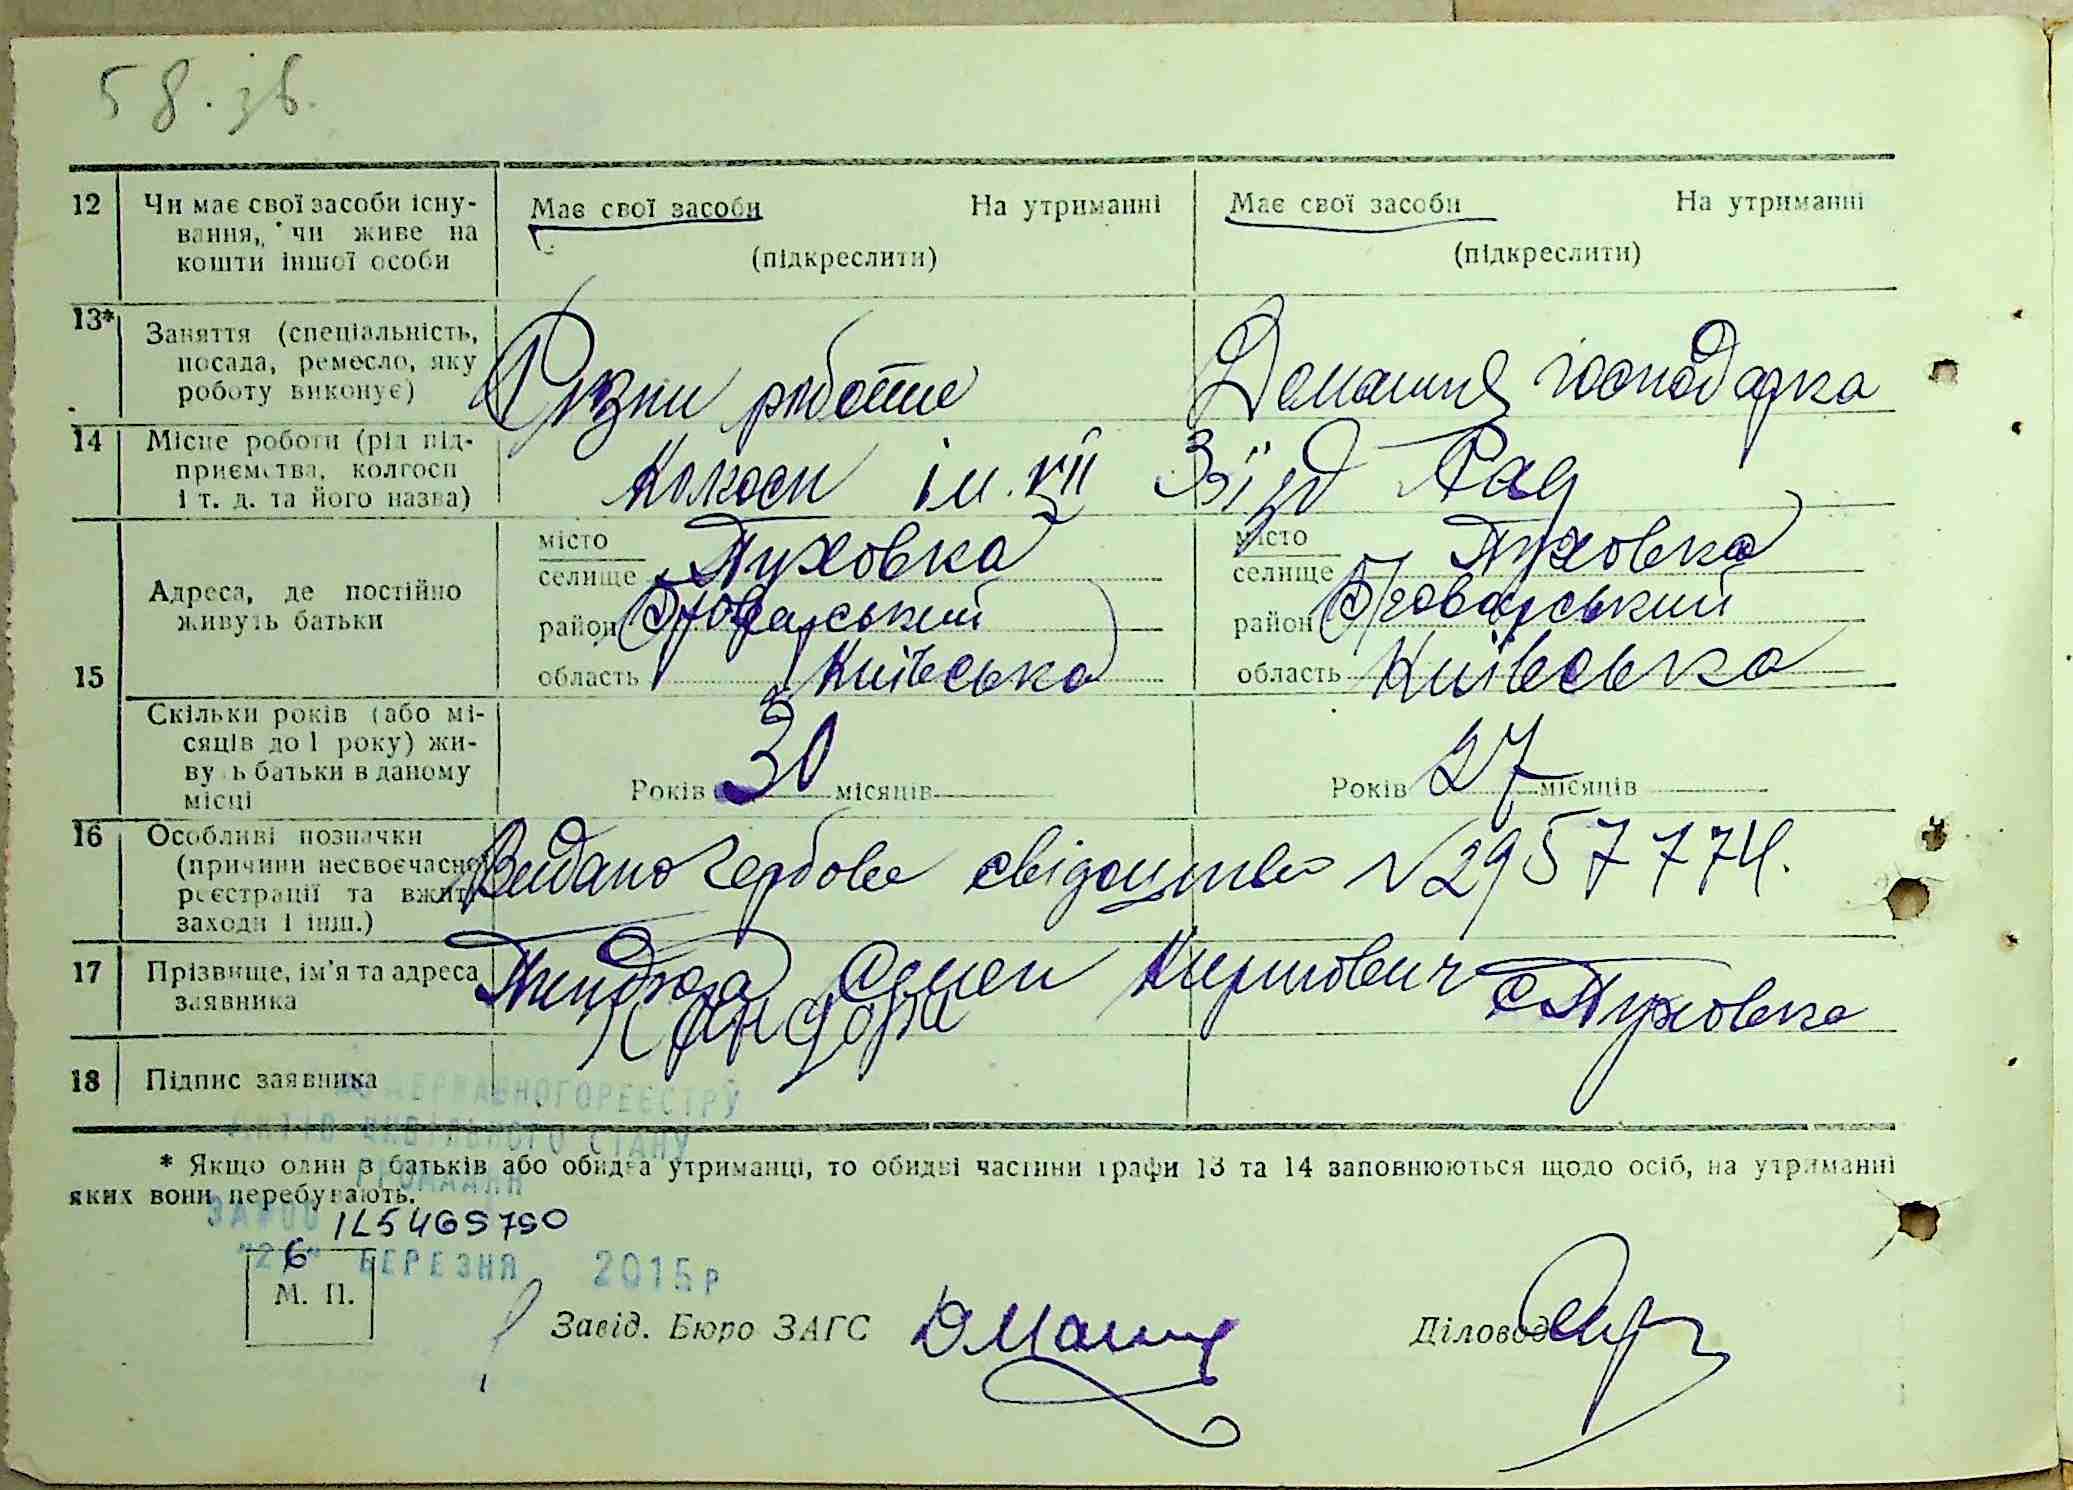 58. зв.
12 Чи має свої засоби існу- Має свої засоби На утриманні Має свої засоби На утриманні
вання, чи живе на
кошти іншої особи (підкреслити) (підкреслити)
13* Заняття (спеціальність,
посада, ремесло, яку
роботу виконує) Різни роботи Домашня господарка
14 Місце роботи (рід під-
приємства, колгосп Колхосп ім. VII Зʼїзд Рад
і т. д. та його назва)
15 Адреса, де постійно
живуть батьки
місто
селище Пуховка
район Броварський
область Київська
місто
селище Пуховка
район Броварський
область Київська
Скільки років (або мі-
сяців до 1 року) жи-
вуть батьки в даному
місці Років 30 місяців Років 27 місяців
16 Особливі позначки
(причини несвоєчасно
реєстрації та вжиті
заходи і інш.) Видано гербове свідоцтво №2957774.
17 Прізвище, ім'я та адреса
заявника Семен Кирилович с Пуховка
18 Підпис заявника
ДЕРЖАВНОГО РЕЄСТРУ
АКТІВ ЦИВІЛЬНОГО СТАНУ
ГРОМАДЯН
* Якщо один з батьків або обидва утриманці, то обидві частини графи 13 та 14 заповнюються щодо осіб, на утриманні
яких вони перебувають.
ЗА №00
"26" БЕРЕЗНЯ 2015 р
М. П.
Завід. Бюро ЗАГС Діловод